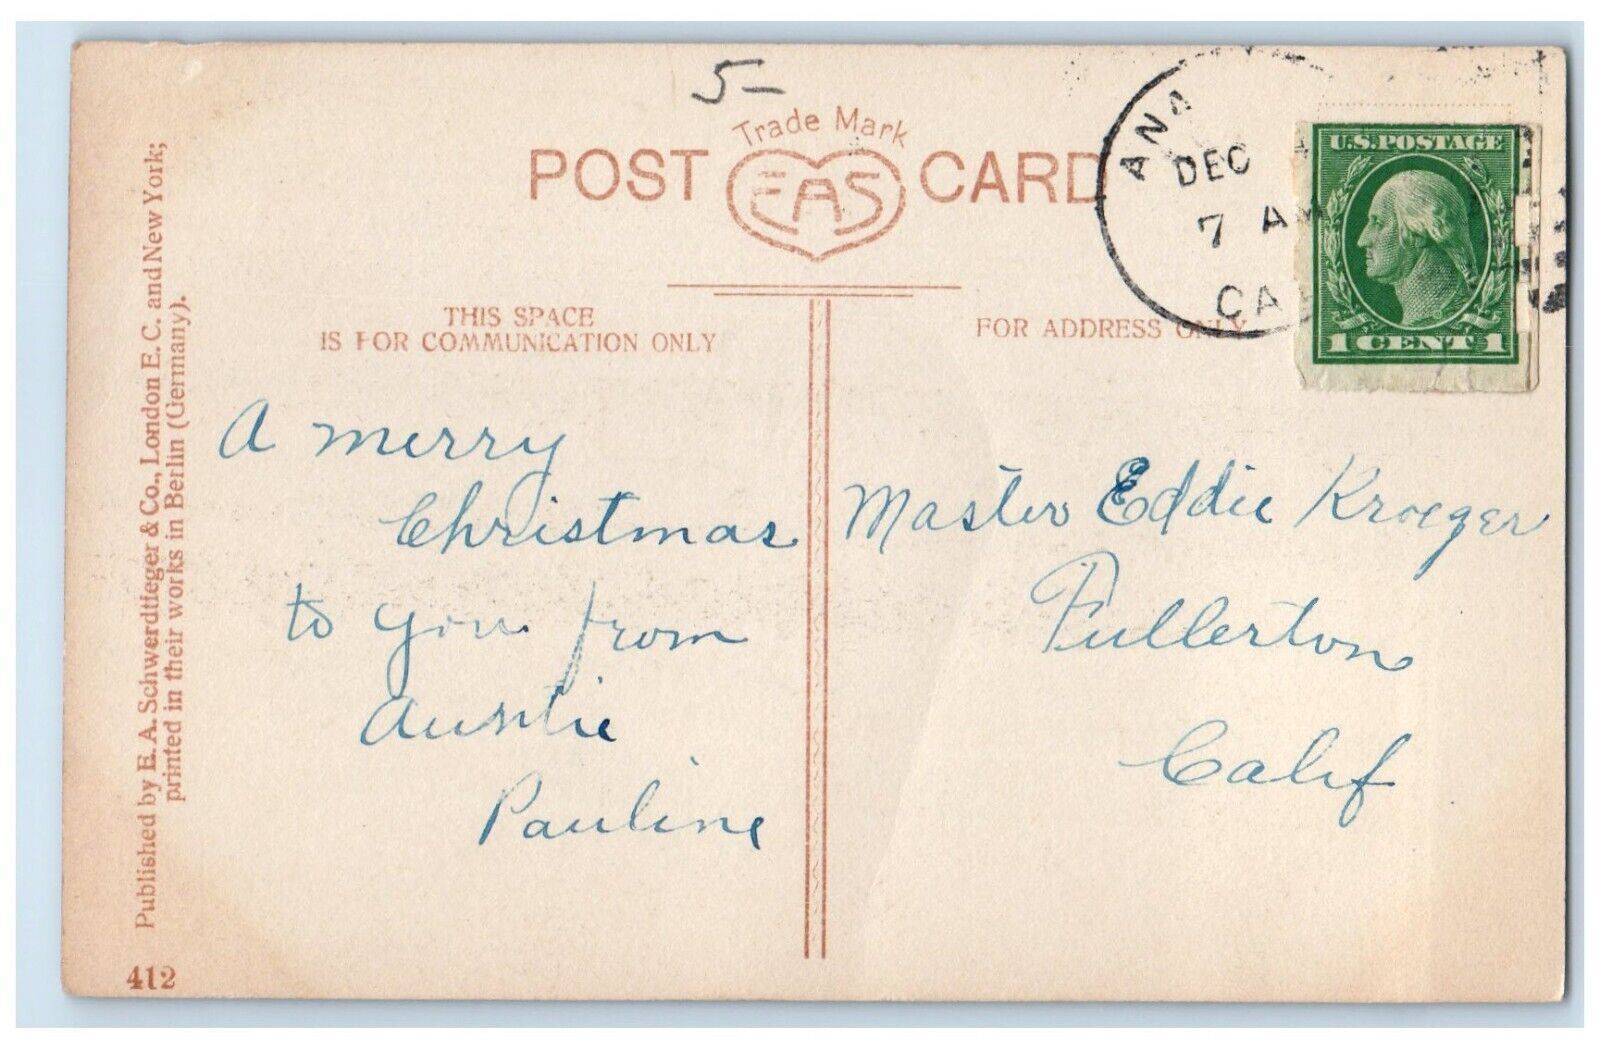 5-
Trade Mark
POST CARD
EAS
ANA
DEC
7 AM
CA
U.S. POSTAGE
1 CENT 1
THIS SPACE
IS FOR COMMUNICATION ONLY
FOR ADDRESS ONLY
A Merry
Christmas
to you from
Auntie
Pauline
Master Eddie Kroeger
Fullerton
Calif
Published by E. A. Schwerdtfeger & Co., London E. C. and New York;
printed in their works in Berlin (Germany).
412